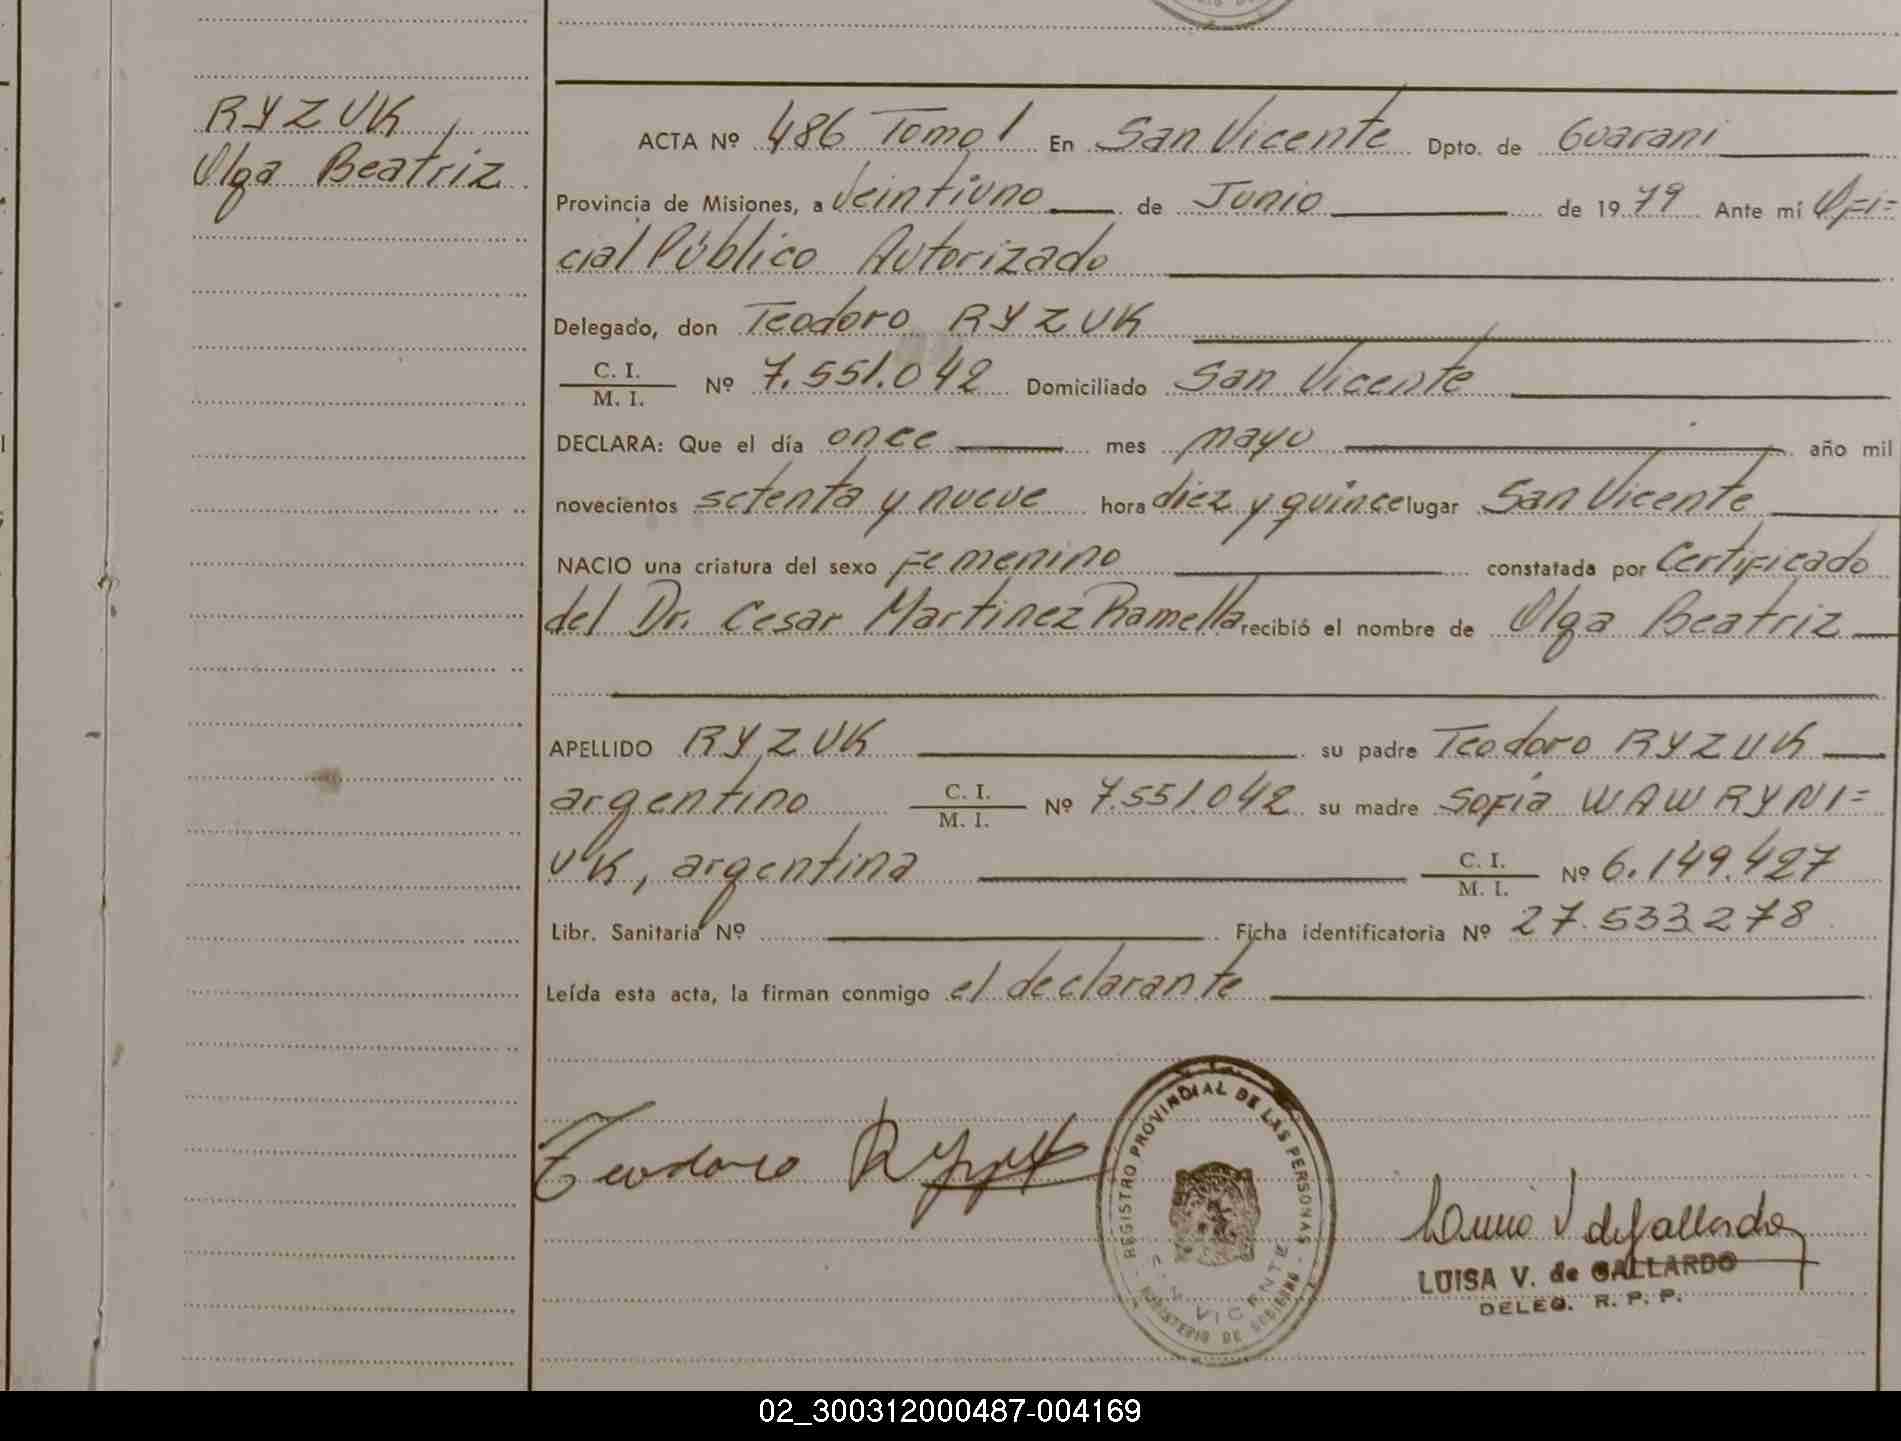 RYZUK
Olga Beatriz
ACTA Nº 486 Tomo I En San Vicente Dpto. de Guarani
Provincia de Misiones, a Veintiuno de Junio de 1979 Ante mí Ofi=
cial Público Autorizado
Delegado, don Teodoro RYZUK
C. I.
M. I. Nº 7.551.042 Domiciliado San Vicente
DECLARA: Que el día once mes mayo año mil
novecientos setenta y nueve hora diez y quince lugar San Vicente
NACIO una criatura del sexo Femenino constatada por Certificado
del Dr. Cesar Martinez Ramella recibió el nombre de Olga Beatriz
APELLIDO RYZUK su padre Teodoro RYZUK
argentino C. I. M. I. Nº 7.551.042 su madre Sofía WAWRYNI=
UK, argentina C. I. M. I. Nº 6.149.427
Libr. Sanitaria Nº Ficha identificatoria Nº 27.533.278
Leída esta acta, la firman conmigo el declarante
Teodoro Ryzuk
REGISTRO PROVINCIAL DE LAS PERSONAS
SAN VICENTE
MINISTERIO DE GOBIERNO
Luisa V de Gallardo
LUISA V. de GALLARDO
DELEG. R. P. P.
02_300312000487-004169